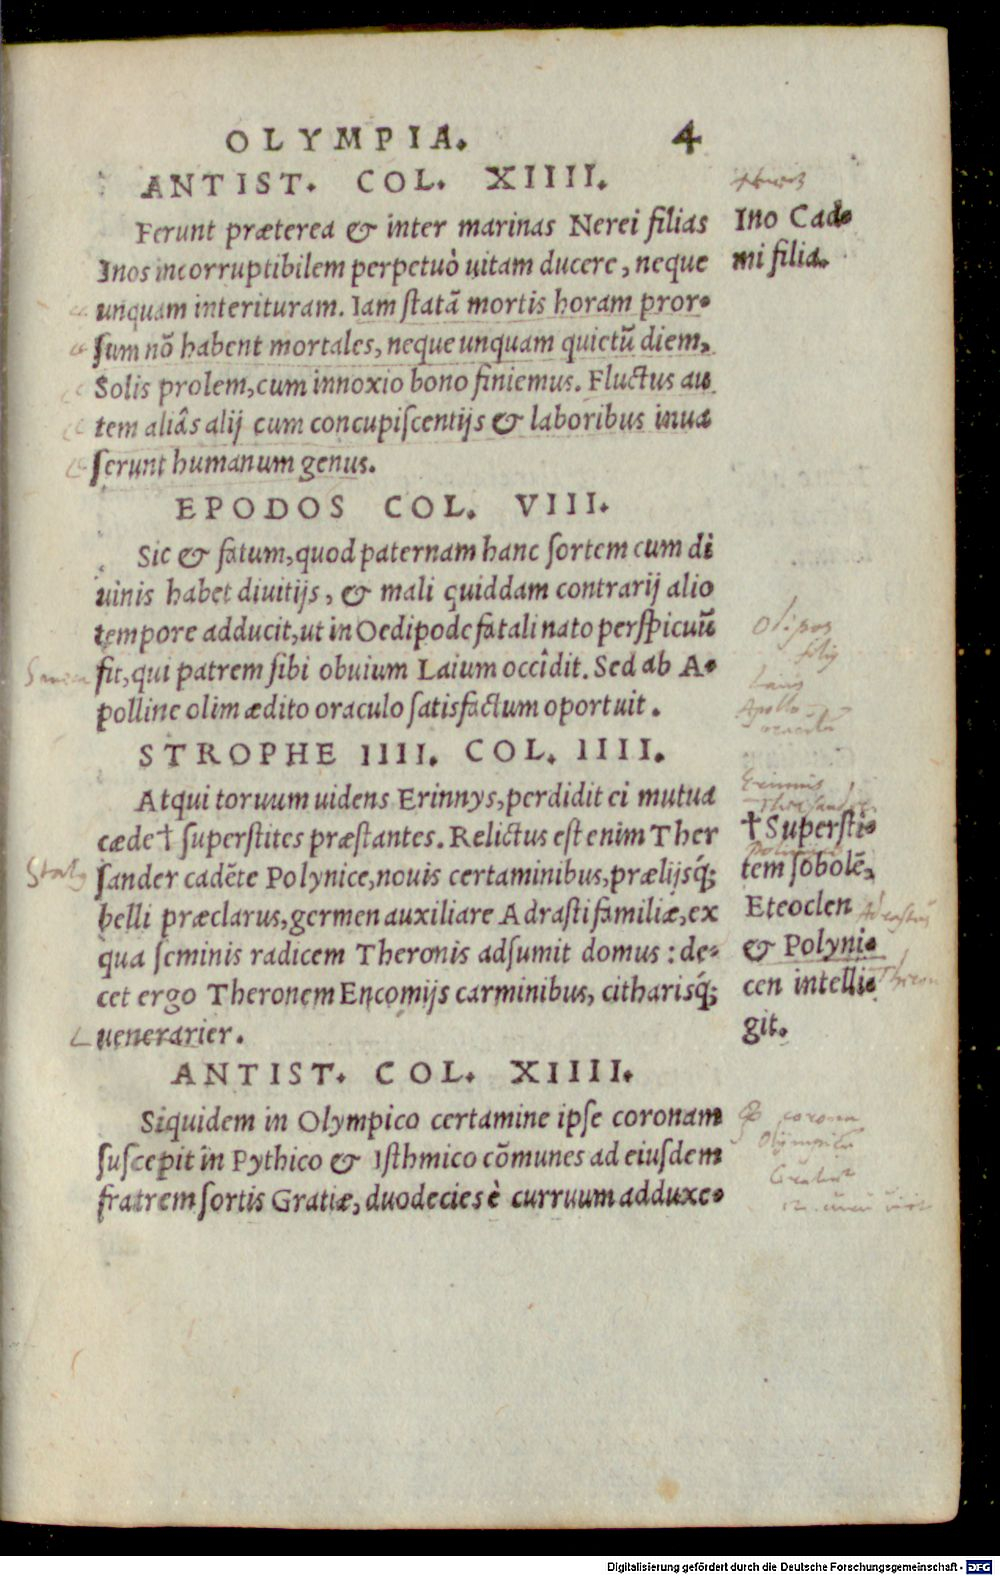 OLYMPIA. 4
ANTIST. COL. XIIII.
Ferunt præterea & inter marinas Nerei filias
Inos incorruptibilem perpetuò uitam ducere, neque
unquam interituram. Iam statã mortis horam pror-
sum nõ habent mortales, neque unquam quietũ diem,
Solis prolem, cum innoxio bono finiemus. Fluctus au
tem aliâs alij cum concupiscentijs & laboribus inua
serunt humanum genus.
Ino Cad-
mi filia.
EPODOS COL. VIII.
Sic & fatum, quod paternam hanc sortem cum di
uinis habet diuitijs, & mali quiddam contrarij alio
tempore adducit, ut in Oedipode fatali nato perspicuũ
fit, qui patrem sibi obuium Laium occîdit. Sed ab A-
polline olim ædito oraculo satisfactum oportuit.
Laius
Apollo
STROPHE IIII. COL. IIII.
Atqui toruum uidens Erinnys, perdidit ei mutua
cæde † superstites præstantes. Relictus est enim Ther
sander cadẽte Polynice, nouis certaminibus, prælijsq́;
belli præclarus, germen auxiliare Adrasti familiæ, ex
qua seminis radicem Theronis adsumit domus: de-
cet ergo Theronem Encomijs carminibus, citharisq́;
uenerarier.
Erinnis
† Supersti-
tem sobolẽ,
Eteoclen
& Polyni-
cen intelli-
git.
ANTIST. COL. XIIII.
Siquidem in Olympico certamine ipse coronam
suscepit in Pythico & Isthmico cõmunes ad eiusdem
fratrem sortis Gratiæ, duodecies è curruum adduxe-
corona
Digitalisierung gefördert durch die Deutsche Forschungsgemeinschaft - DFG